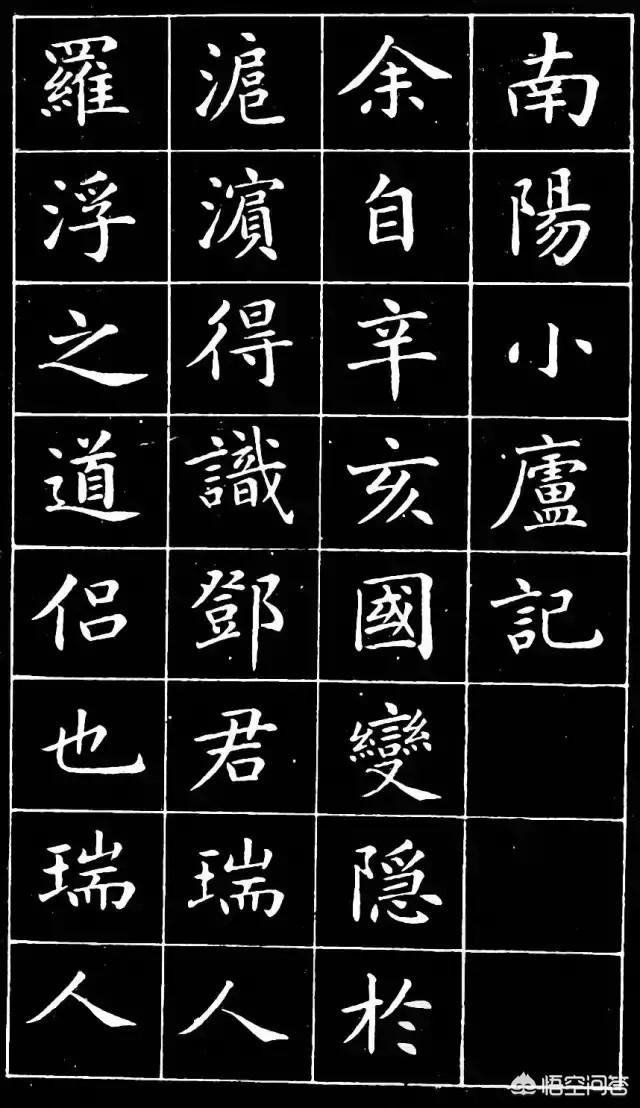 南陽小廬記
余自辛亥國變隱於
滬濱得識鄧君瑞人
羅浮之道侶也瑞人
悟空问答